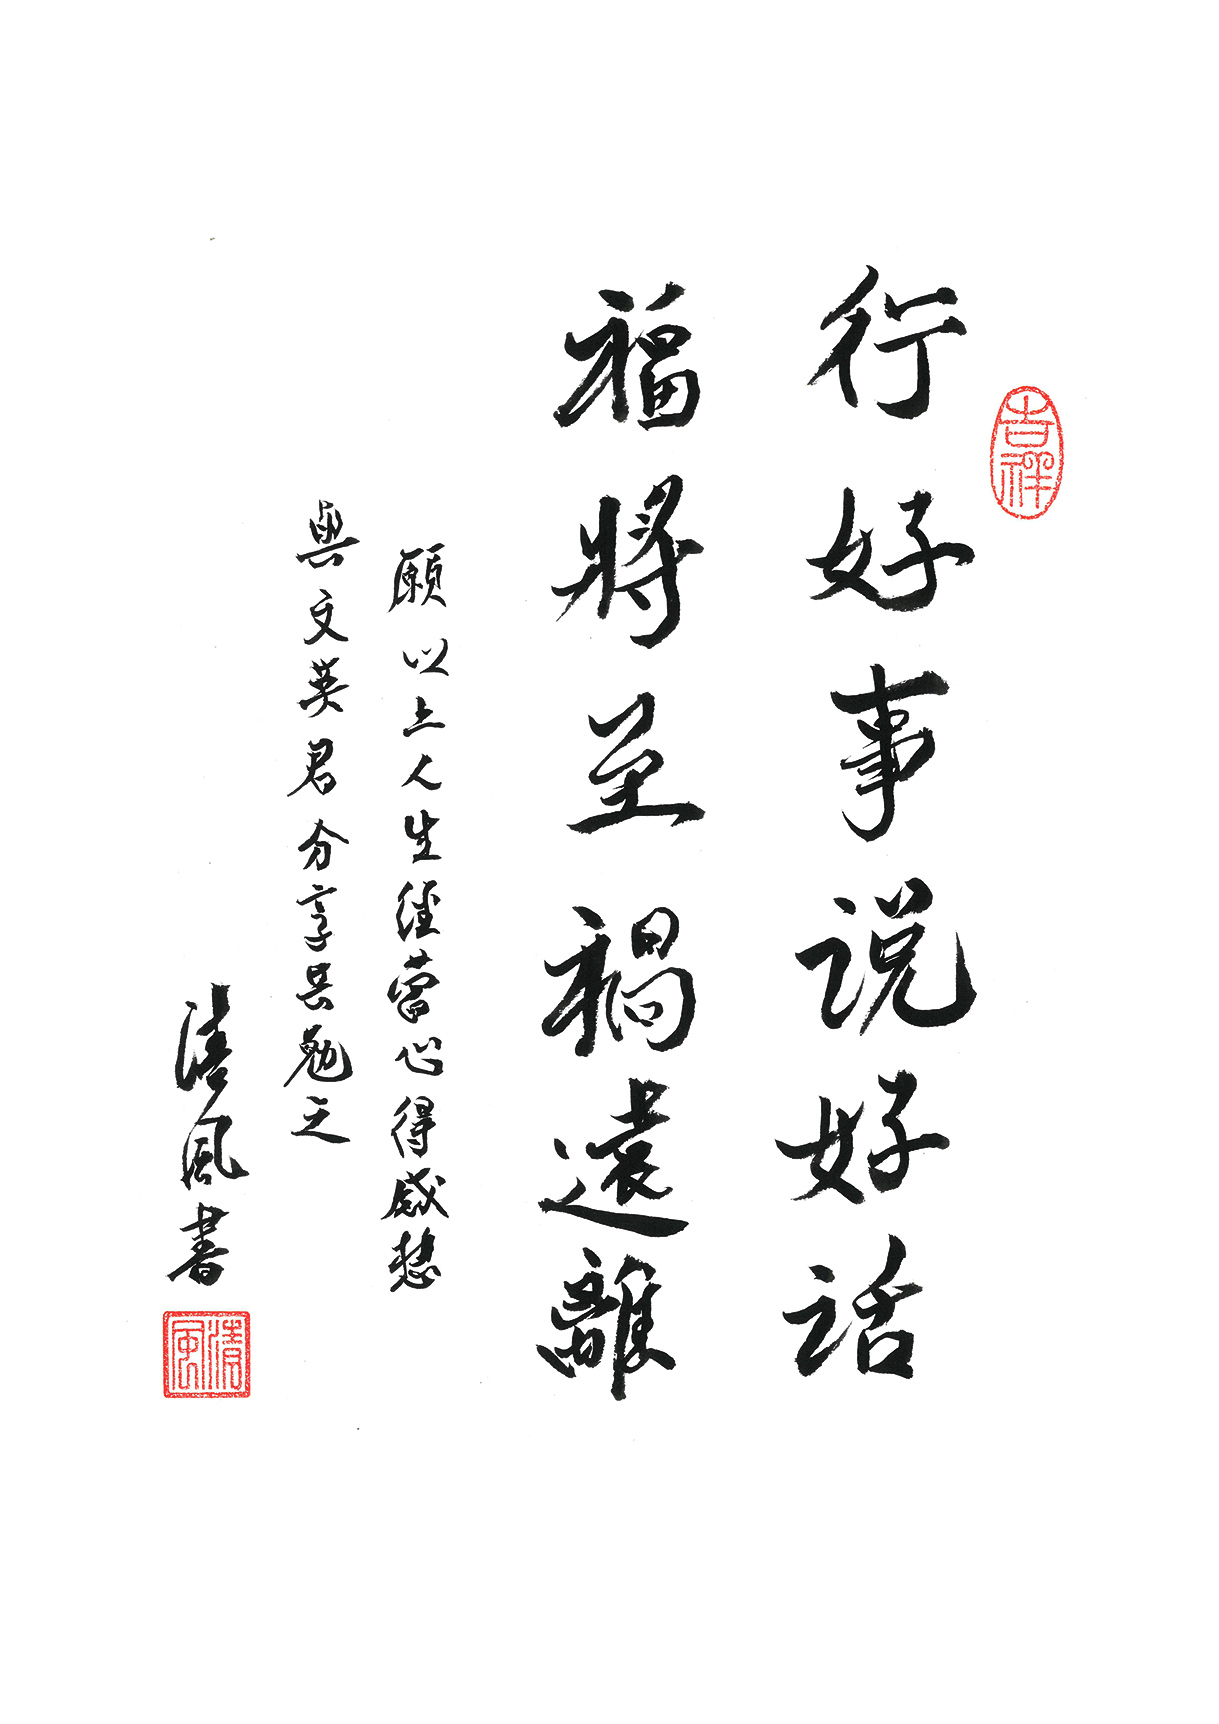 吉祥
行好事説好話
福將至禍遠離
願以上人生經營心得感想
與文英君分享共勉之
清風書
清風